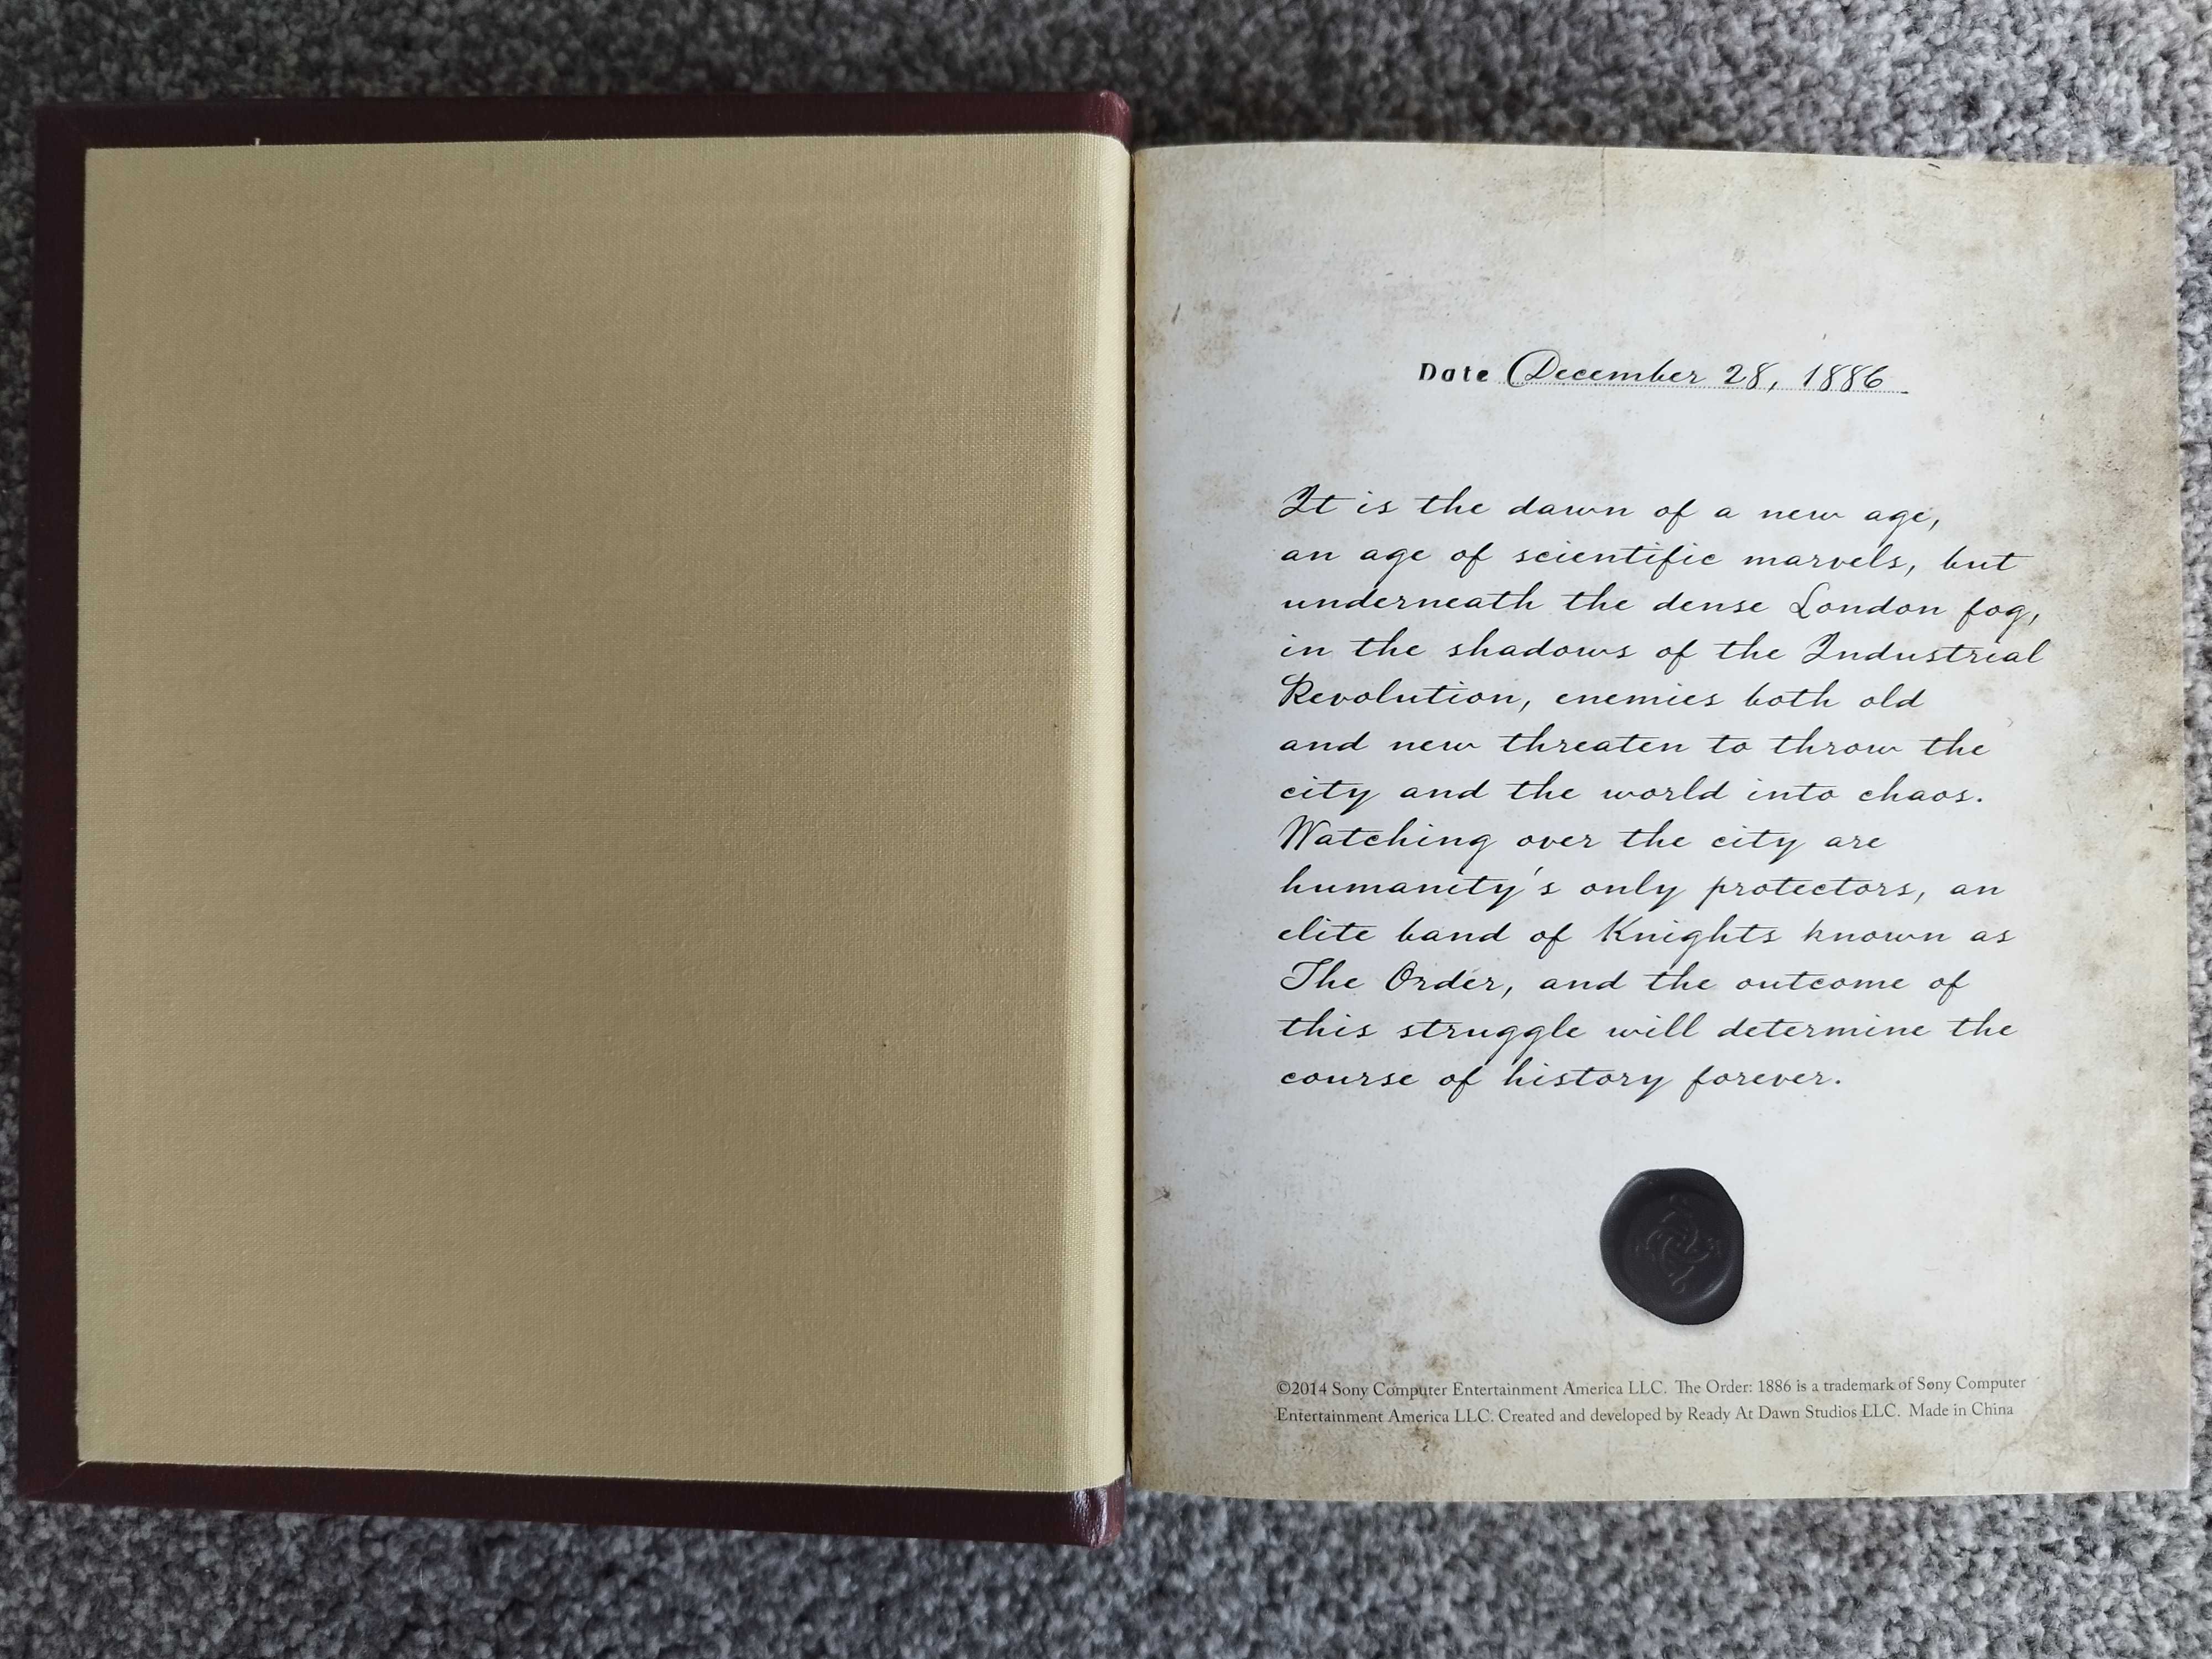 Date December 28, 1886
It is the dawn of a new age,
an age of scientific marvels, but
underneath the dense London fog,
in the shadows of the Industrial
Revolution, enemies both old
and new threaten to throw the
city and the world into chaos.
Watching over the city are
humanity's only protectors, an
elite band of Knights known as
The Order, and the outcome of
this struggle will determine the
course of history forever.
©2014 Sony Computer Entertainment America LLC. The Order: 1886 is a trademark of Sony Computer
Entertainment America LLC. Created and developed by Ready At Dawn Studios LLC. Made in China